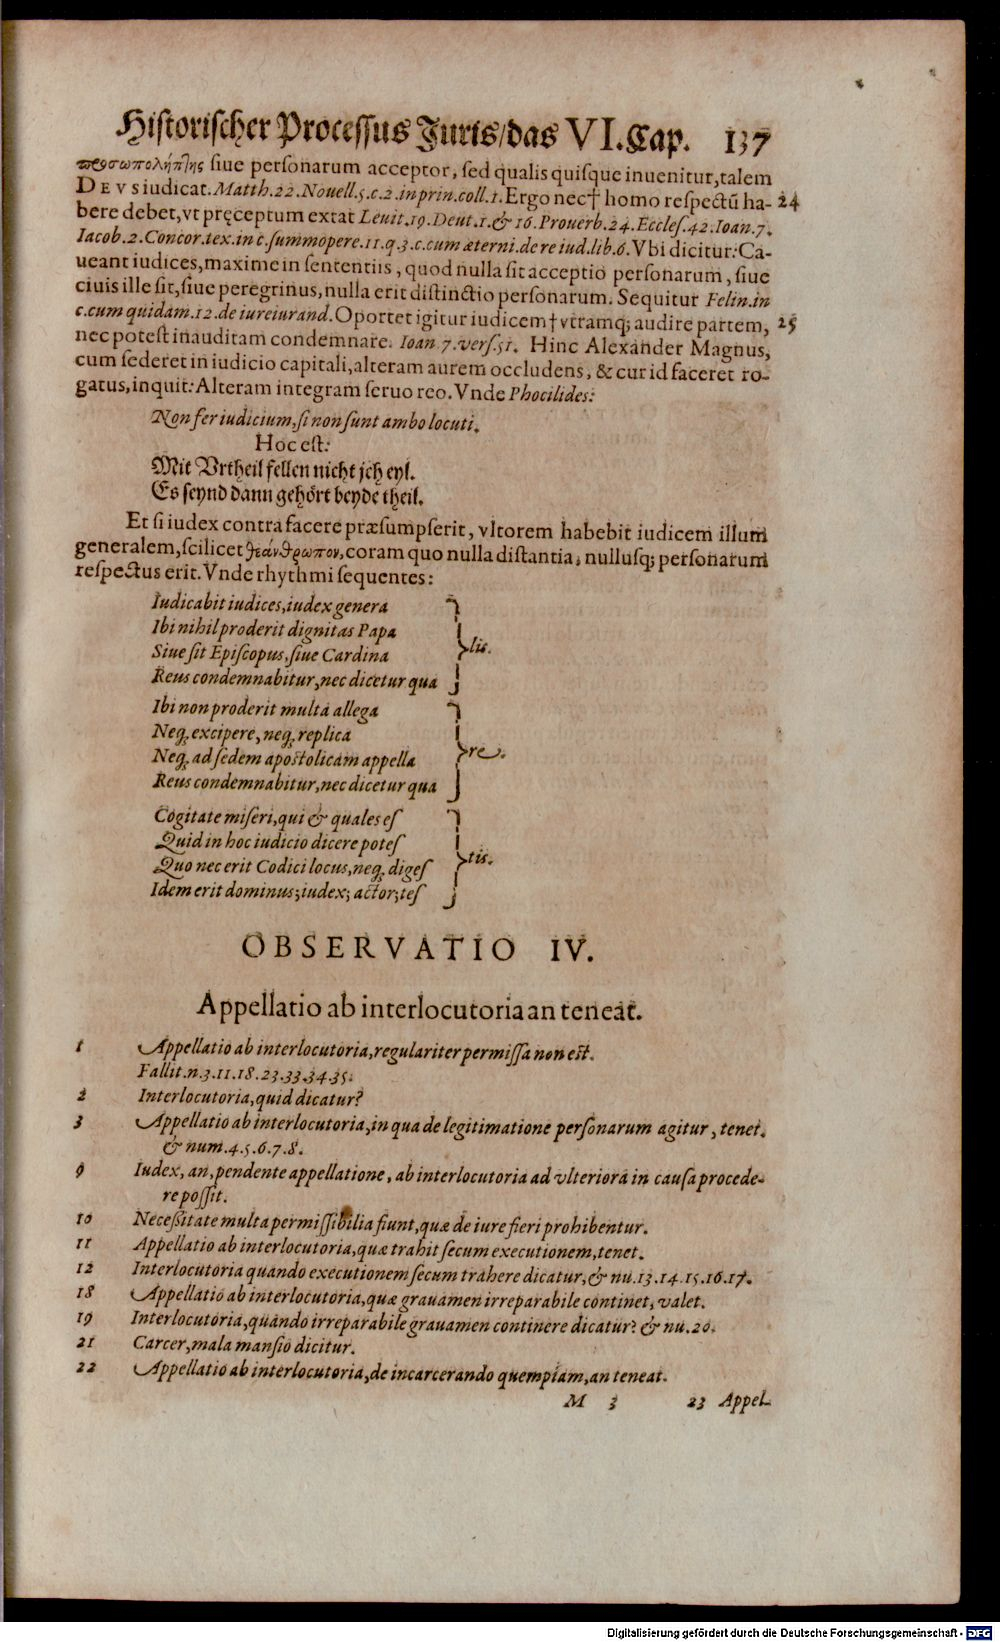 Historischer Processus Juris/das VI.Cap. 137
προσωπολήπτης siue personarum acceptor, sed qualis quisque inuenitur,talem
DEVS iudicat.Matth.22.Nouell.5.c.2.in prin.coll.1.Ergo nec† homo respectũ ha- 24
bere debet,vt pręceptum extat Leuit.19.Deut.1.& 16.Prouerb.24.Eccles.42.Ioan.7.
Iacob.2.Concor.tex.in c.summopere.11.q.3.c.cum æterni.de re iud.lib.6.Vbi dicitur:Ca-
ueant iudices,maxime in sententiis, quod nulla sit acceptio personarum, siue
ciuis ille sit,siue peregrinus,nulla erit distinctio personarum. Sequitur Felin.in
c.cum quidam.12.de iureiurand.Oportet igitur iudicem†vtramq; audire partem, 25
nec potest inauditam condemnare. Ioan.7.vers.51. Hinc Alexander Magnus,
cum sederet in iudicio capitali,alteram aurem occludens, & cur id faceret ro-
gatus,inquit:Alteram integram seruo reo.Vnde Phocilides:
Non fer iudicium,si non sunt ambo locuti.
Hoc est:
Mit Vrtheil fellen nicht jch eyl.
Es seynd dann gehört beyde theil.
Et si iudex contra facere præsumpserit, vltorem habebit iudicem illum
generalem,scilicet θεάνθρωπον,coram quo nulla distantia, nullusq; personarum
respectus erit.Vnde rhythmi sequentes:
Iudicabit iudices,iudex genera
Ibi nihil proderit dignitas Papa
Siue sit Episcopus,siue Cardina
lis.
Reus condemnabitur,nec dicetur qua
Ibi non proderit multa allega
Neq; excipere, neq; replica
Neq; ad sedem apostolicam appella
re.
Reus condemnabitur,nec dicetur qua
Cogitate miseri,qui & quales es
Quid in hoc iudicio dicere potes
Quo nec erit Codici locus,neq; diges
tis.
Idem erit dominus;iudex; actor;tes
OBSERVATIO IV.
Appellatio ab interlocutoria an teneat.
1 Appellatio ab interlocutoria,regulariter permissa non est.
Fallit.n.3.11.18.23.33.34.35.
2 Interlocutoria,quid dicatur?
3 Appellatio ab interlocutoria,in qua de legitimatione personarum agitur, tenet.
& num.4.5.6.7.8.
9 Iudex, an, pendente appellatione, ab interlocutoria ad vlteriora in causa procede-
re possit.
10 Necessitate multa permissibilia fiunt,quæ de iure fieri prohibentur.
11 Appellatio ab interlocutoria,quæ trahit secum executionem,tenet.
12 Interlocutoria quando executionem secum trahere dicatur,& nu.13.14.15.16.17.
18 Appellatio ab interlocutoria,quæ grauamen irreparabile continet, valet.
19 Interlocutoria,quando irreparabile grauamen continere dicatur? & nu.20.
21 Carcer,mala mansio dicitur.
22 Appellatio ab interlocutoria,de incarcerando quempiam,an teneat.
M 3 23 Appel-
Digitalisierung gefördert durch die Deutsche Forschungsgemeinschaft - DFG